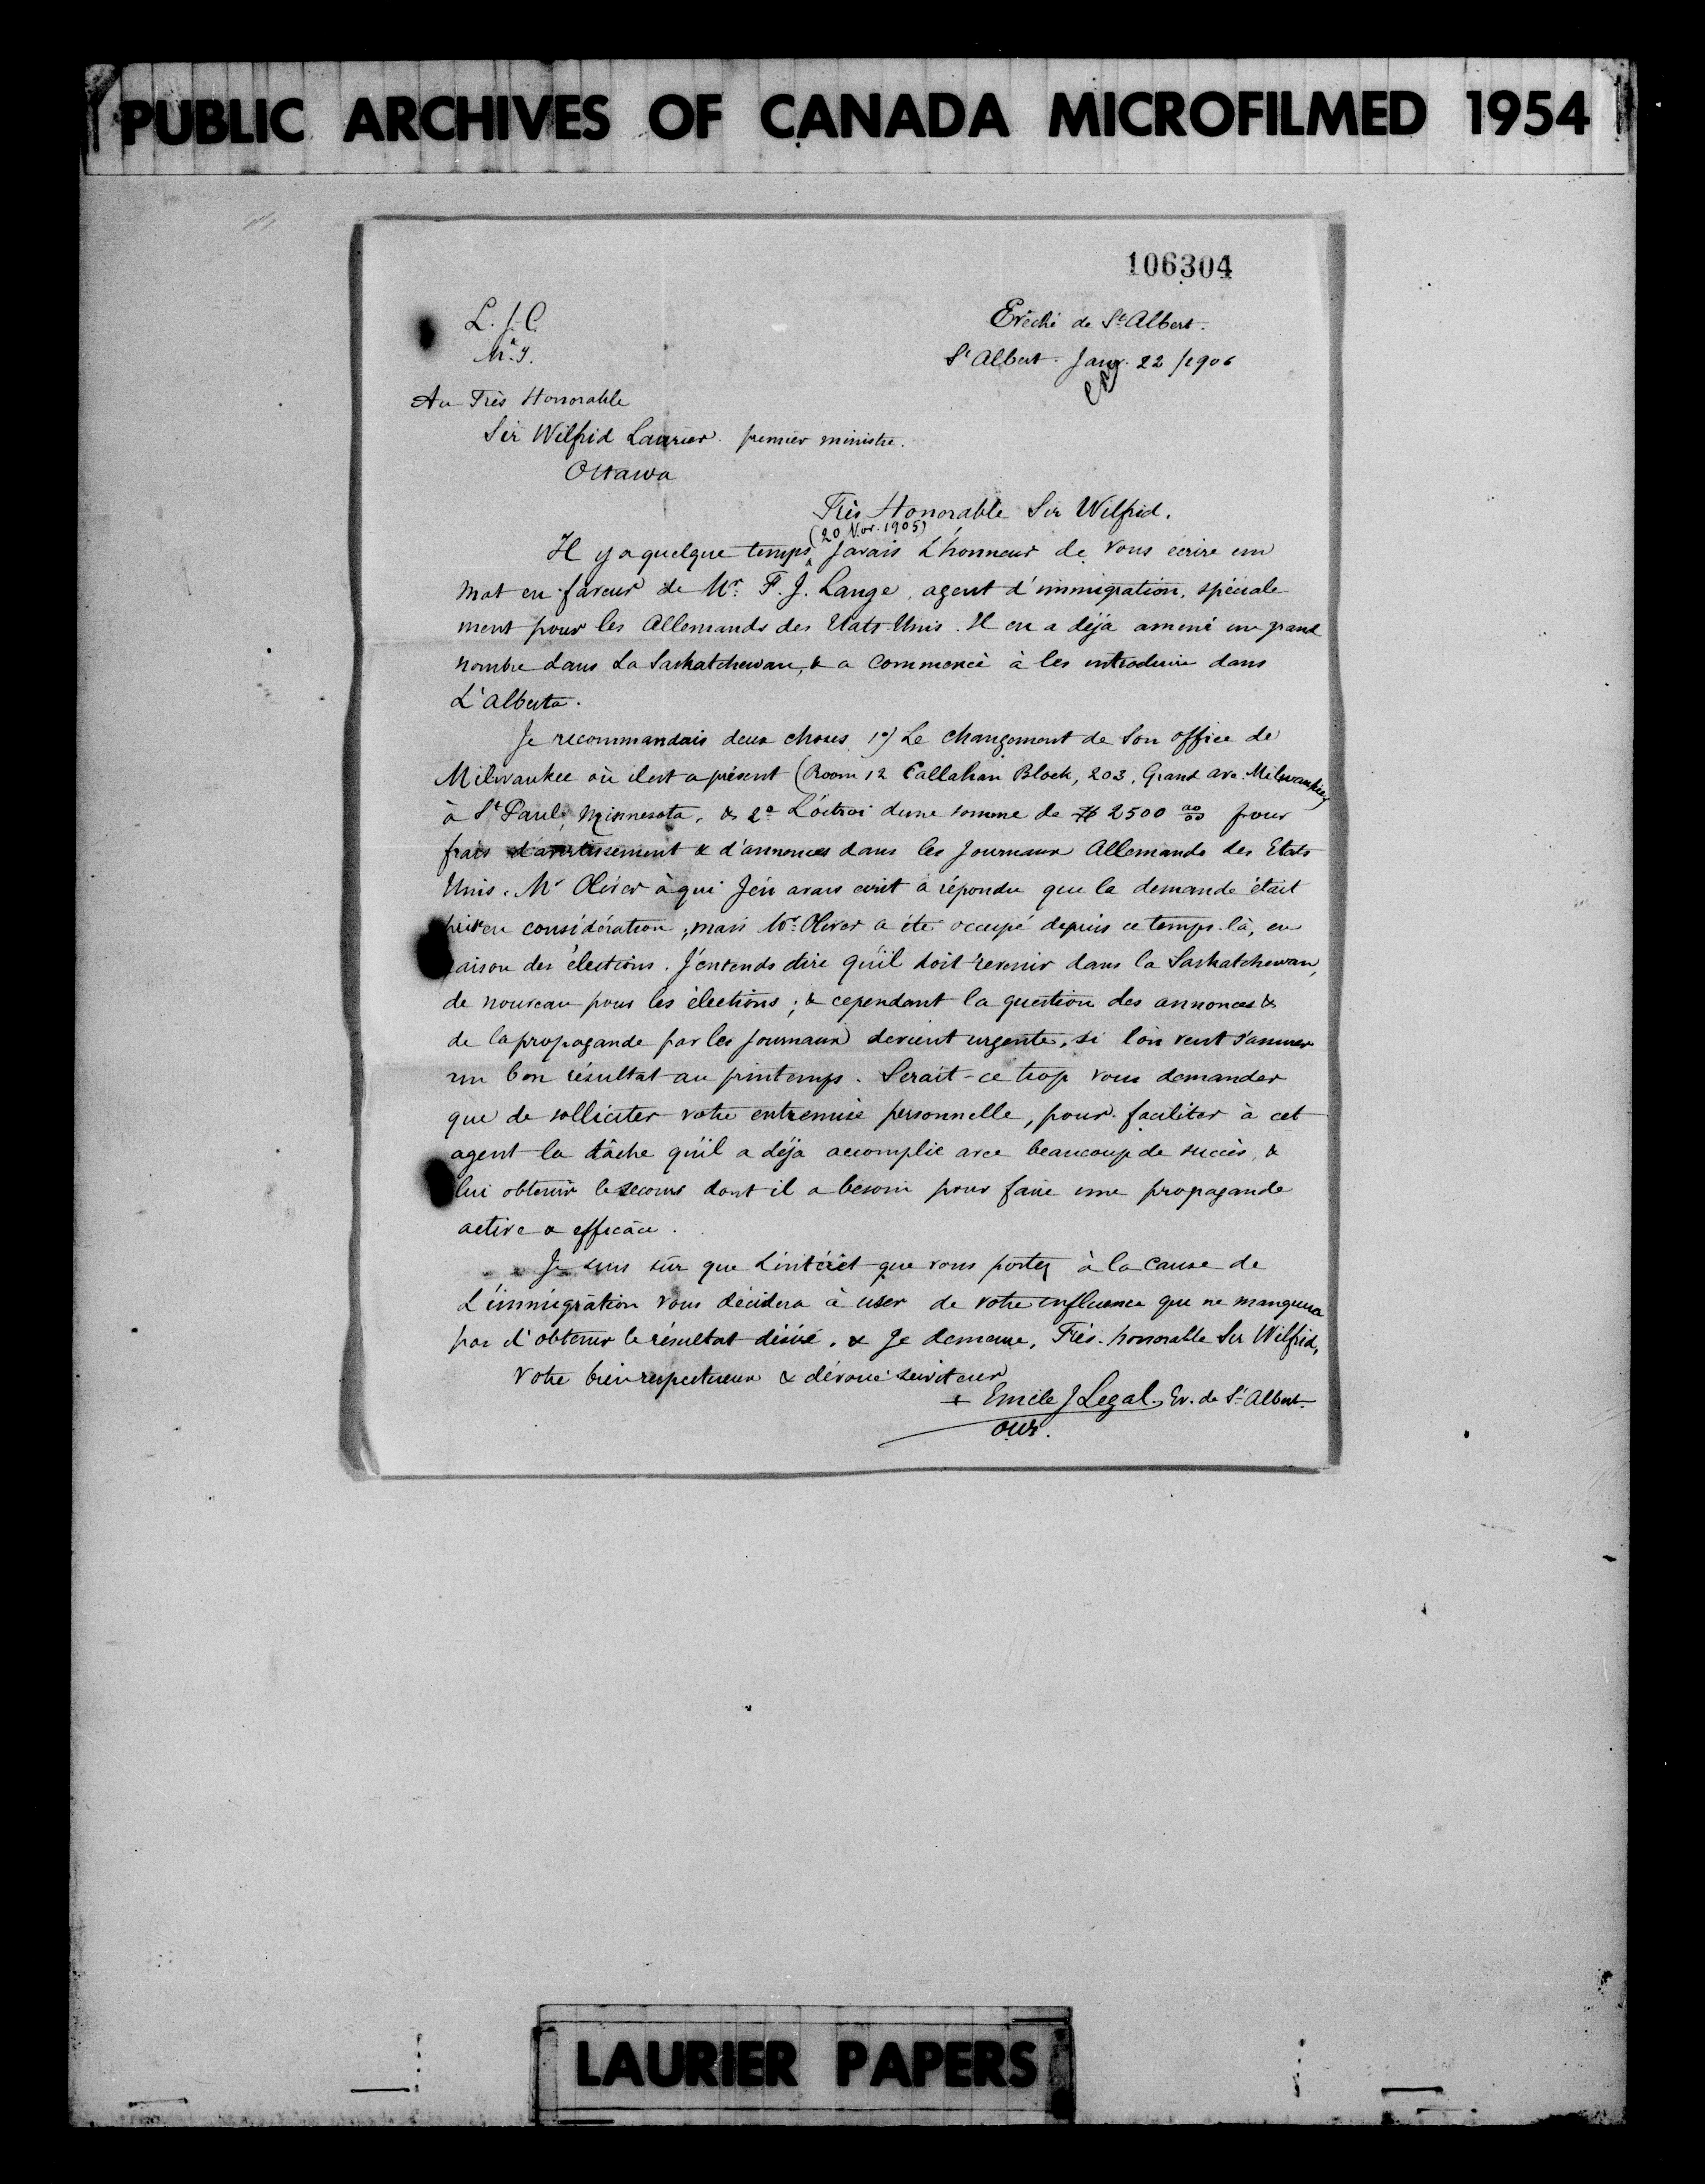 PUBLIC ARCHIVES OF CANADA MICROFILMED 1954
106304
L. J. C.
M. I.
Evêché de St Albert.
St Albert. Janv. 22 / 1906
Au Très Honorable
Sir Wilfrid Laurier. premier ministre.
Ottawa
Très Honorable Sir Wilfrid.
(20 Nov. 1905)
Il y a quelque temps J'avais L'honneur de vous écrire un
mot en faveur de Mr. F. J. Lange, agent d'immigration, spéciale
ment pour les Allemands des Etats Unis. Il en a déjà amené un grand
nombre dans La Saskatchewan, & a commencé à les introduire dans
L'Alberta.
Je recommandais deux choses 1o) Le changement de son office de
Milwaukee où il est a présent (Room 12 Callahan Block, 203, Grand ave. Milwaukee)
à St Paul, Minnesota, & 2o L'octroi d'une somme de $ 2500 00/00 pour
frais d'avertissement & d'annonces dans les Journaux Allemands des Etats
Unis. Mr Oliver à qui J'en avais écrit a répondu que la demande était
prise en considération; mais Mr. Oliver a été occupé depuis ce temps-là, en
raison des élections. J'entends dire qu'il doit revenir dans la Saskatchewan,
de nouveau pour les élections; & cependant la question des annonces &
de la propagande par les Journaux devient urgente, si l'on veut s'assurer
un bon résultat au printemps. Serait-ce trop vous demander
que de solliciter votre entremise personnelle, pour faciliter à cet
agent la tâche qu'il a déjà accomplie avec beaucoup de succès, &
lui obtenir le secours dont il a besoin pour faire une propagande
active & efficace.
Je suis sûr que L'intérêt que vous portez à la cause de
L'immigration vous décidera à user de votre influence que ne manquera
pas d'obtenir le résultat désiré. & Je demeure, Très-honorable Sir Wilfrid,
Votre bien respectueux & dévoué serviteur
+ Emile J Legal. Ev. de St Albert.
O.M.I.
LAURIER PAPERS